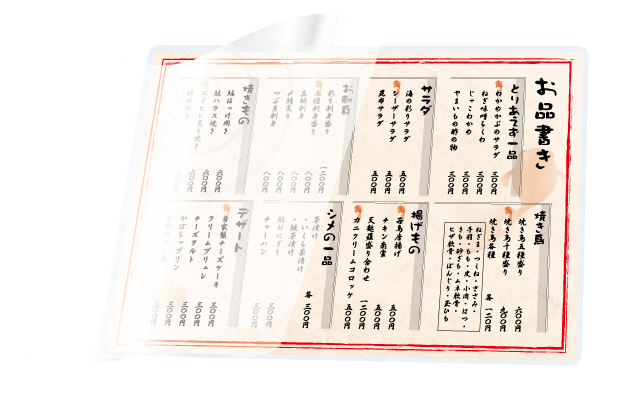 お品書き
とりあえず一品
わかめかぶのサラダ 三〇〇円
ねぎ味噌ちくわ 三〇〇円
じゃこわかめ 三〇〇円
やまいもの酢の物 三〇〇円
サラダ
海の彩りサラダ 五〇〇円
シーザーサラダ 五〇〇円
昆布サラダ 五〇〇円
お刺身
彩り刺身盛り 一二〇〇円
五種刺身盛り 八〇〇円
真鯛刺身 八〇〇円
〆鯖炙り 八〇〇円
つぶ貝刺身 八〇〇円
焼きもの
縞ほっけ開き 六〇〇円
鮭ハラス焼き 六〇〇円
焼き鳥
焼き鳥五種盛り 六〇〇円
焼き鳥十種盛り 九〇〇円
焼き鳥各種 各 一二〇円
ねぎま・つくね・ささみ・
手羽・もも・皮・小肉・はつ・
きも・砂ぎも・ムネ軟骨・
ヒザ軟骨・ぼんじり・豆ひも
揚げもの
若鳥唐揚げ 五〇〇円
チキン南蛮 五〇〇円
天麩羅盛り合わせ 一二〇〇円
カニクリームコロッケ 五〇〇円
シメの一品
茶漬け 各 三〇〇円
・いくら茶漬け
・鮭茶漬け
鮭おにぎり 三〇〇円
チャーハン 三〇〇円
デザート
自家製チーズケーキ
クリームブリュレ 三〇〇円
チーズタルト 三〇〇円
かぼちゃプリン 三〇〇円